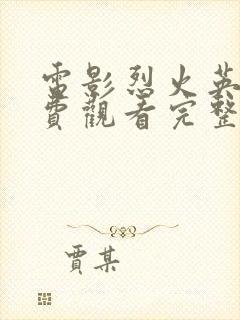 電影烈火英
費觀看完整
賈某